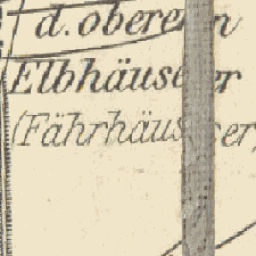 d. oberen
Elbhäuser
(Fährhäuser,